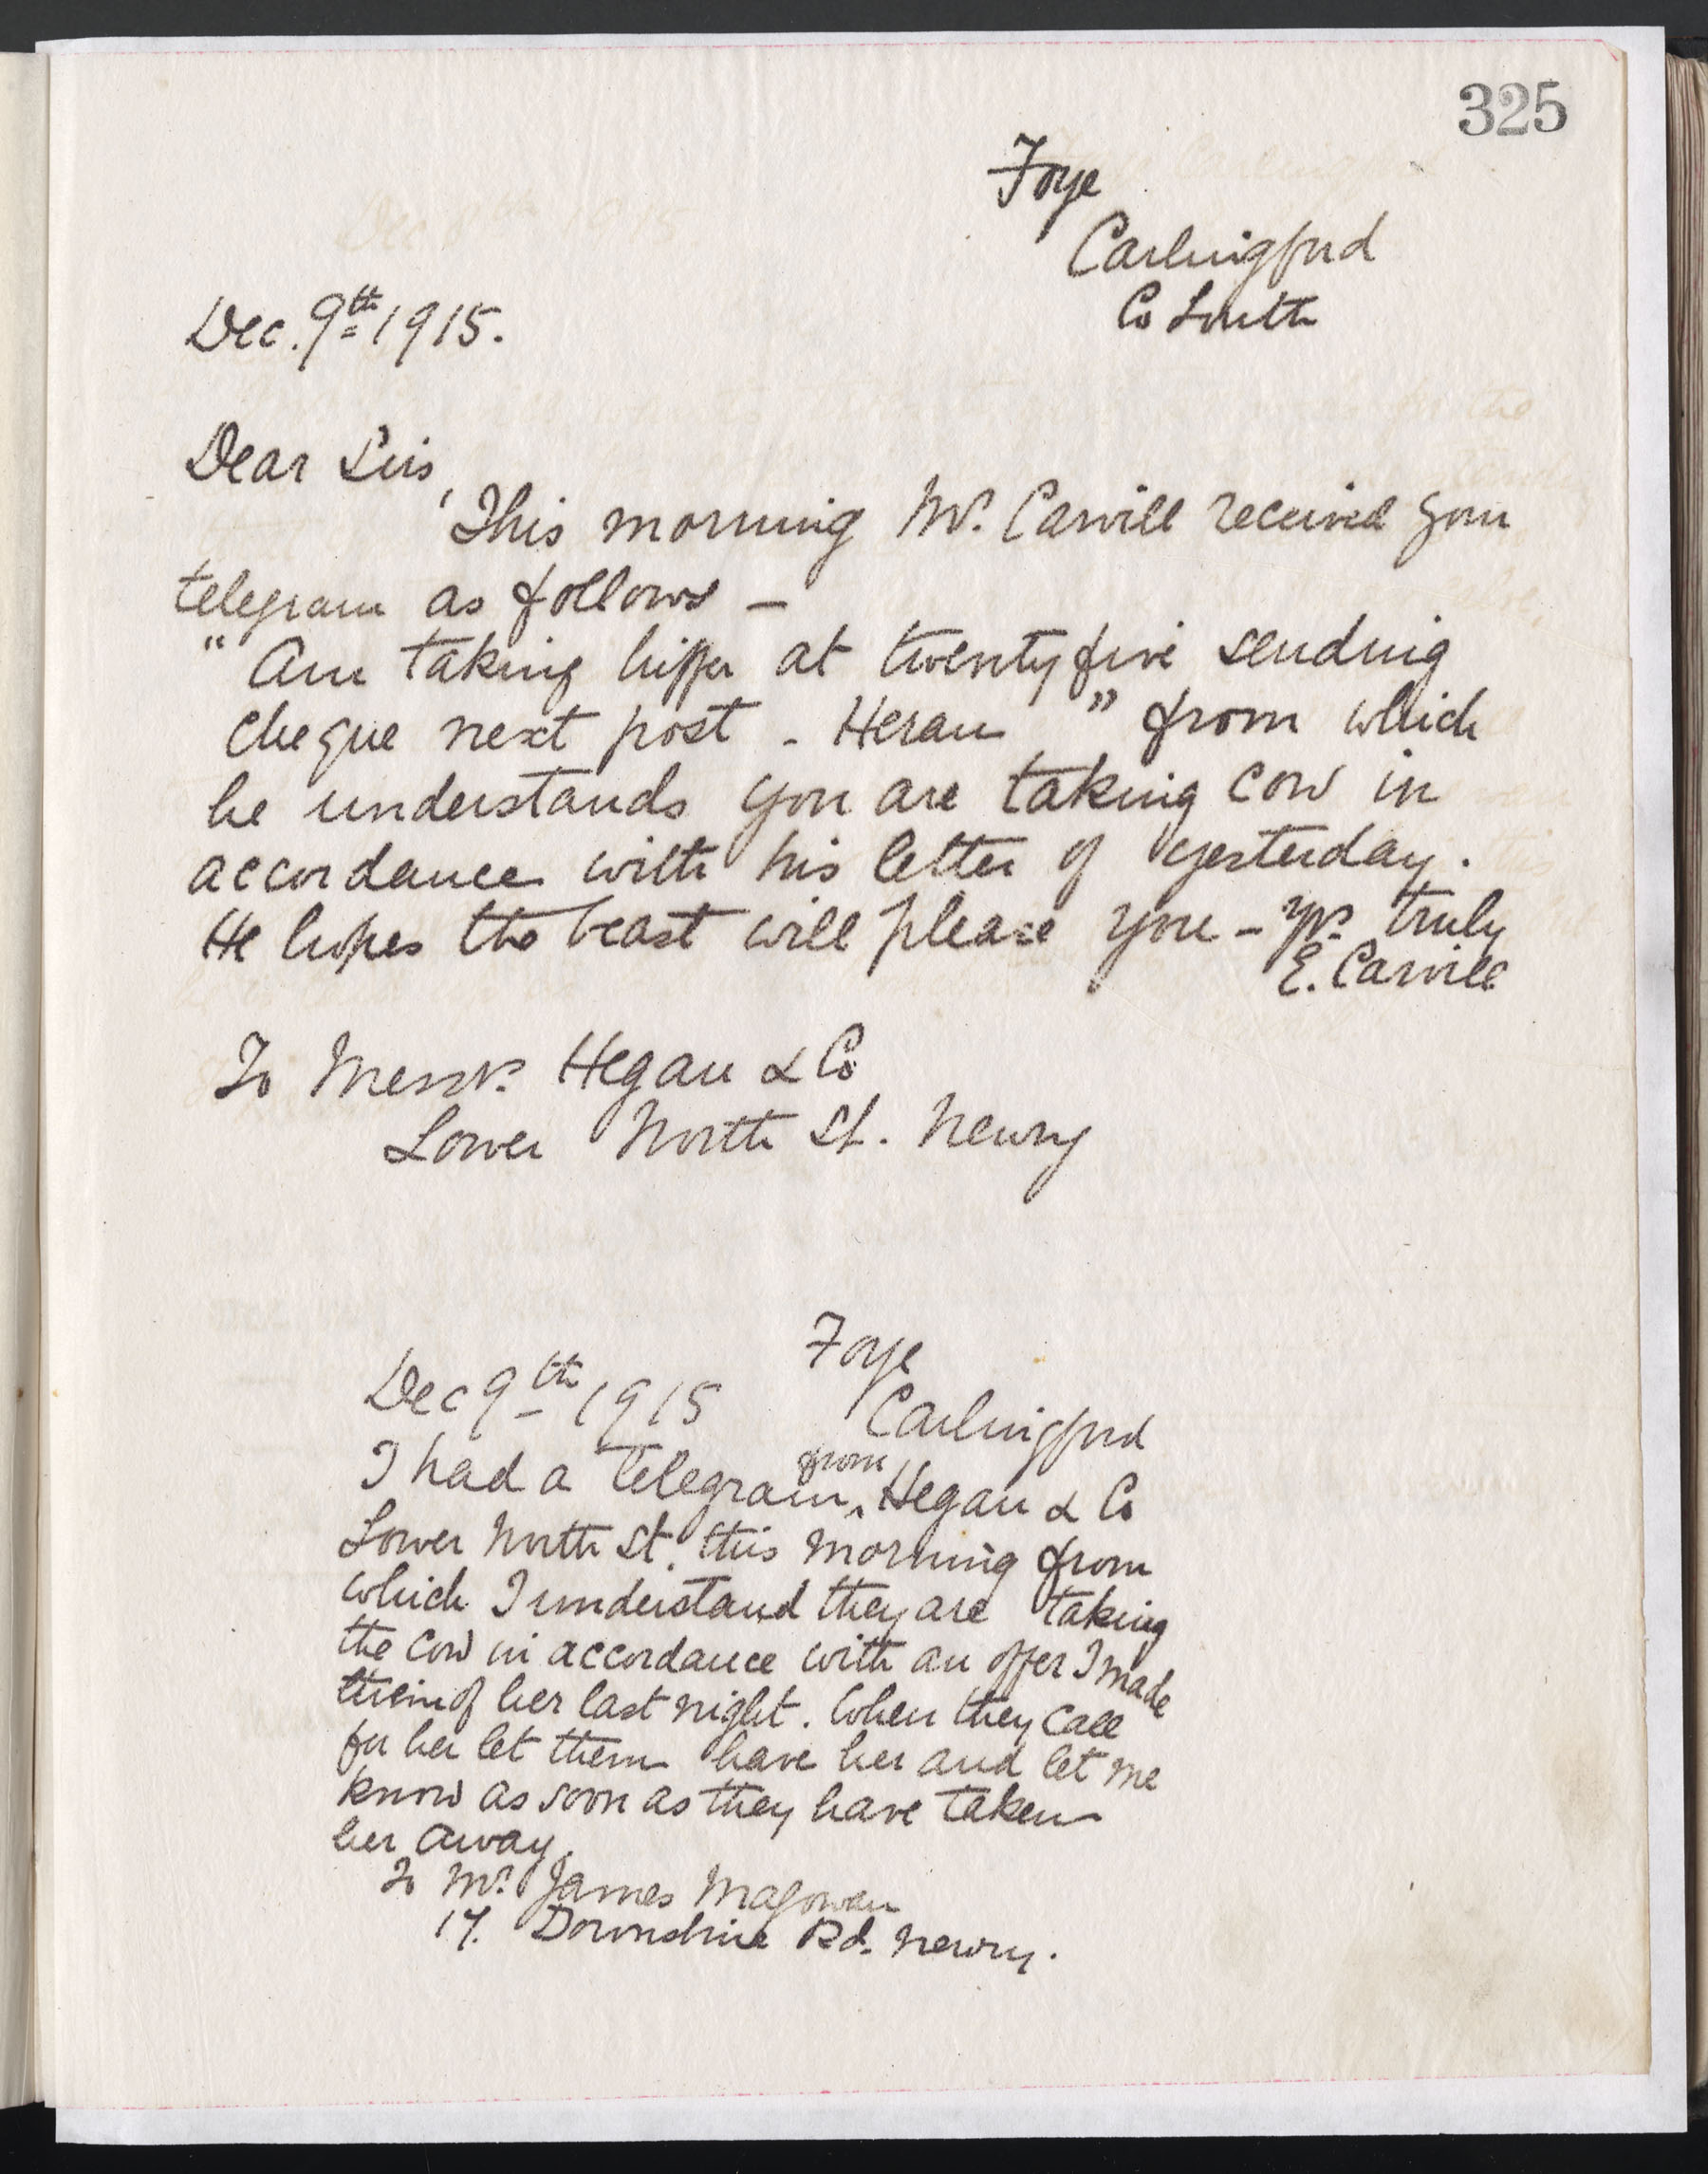 325
Foye
Carlingford
Co Louth
Dec. 9th 1915.
Dear Sirs,
This morning Mr. Carvill received your
telegram as follows —
" Am taking hiffer at twentyfive sending
cheque next post - Heran " from which
he understands you are taking cow in
accordance with his letter of yesterday.
He hopes the beast will please you - Yrs. truly
E. Carvill
To Messrs. Hegan & Co
Lower North St. Newry
Foye
Dec 9th 1915
Carlingford
I had a telegram from Hegan & Co
Lower North St. this morning from
which I understand they are taking
the cow in accordance with an offer I made
them of her last night. When they call
for her let them have her and let me
know as soon as they have taken
her away.
To Mr. James Magowan
17. Downshire Rd. Newry.